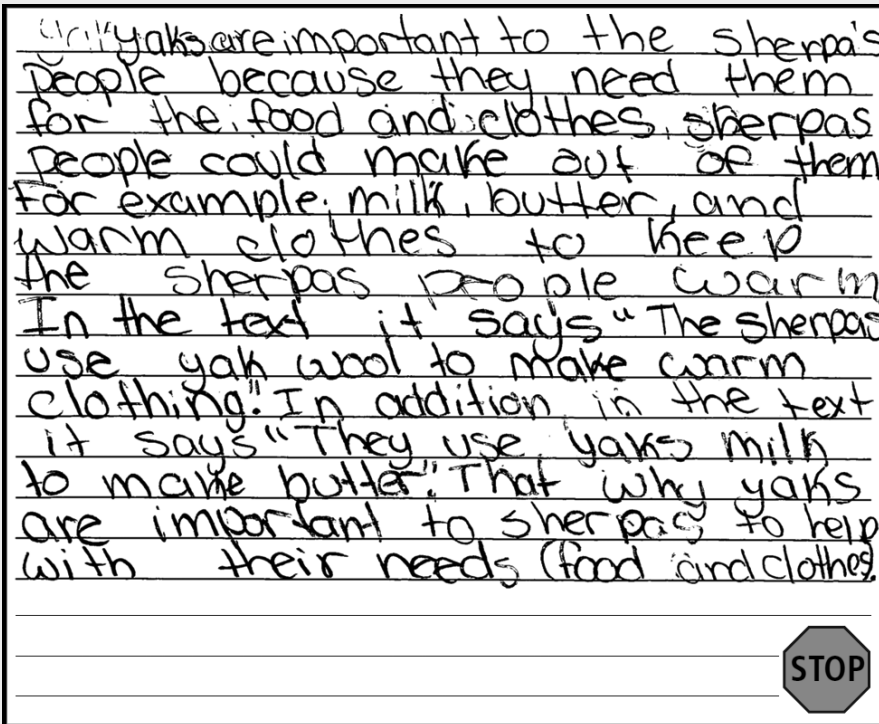 yaks are important to the sherpa's
people because they need them
for the food and clothes sherpas
people could make out of them
For example, milk, butter, and
warm clothes to keep
the sherpas people warm
In the text it says "The sherpas
use yak wool to make warm
clothing." In addition in the text
it says "They use yaks milk
to make butter." That why yaks
are important to sherpas to help
with their needs (food and clothes).
STOP